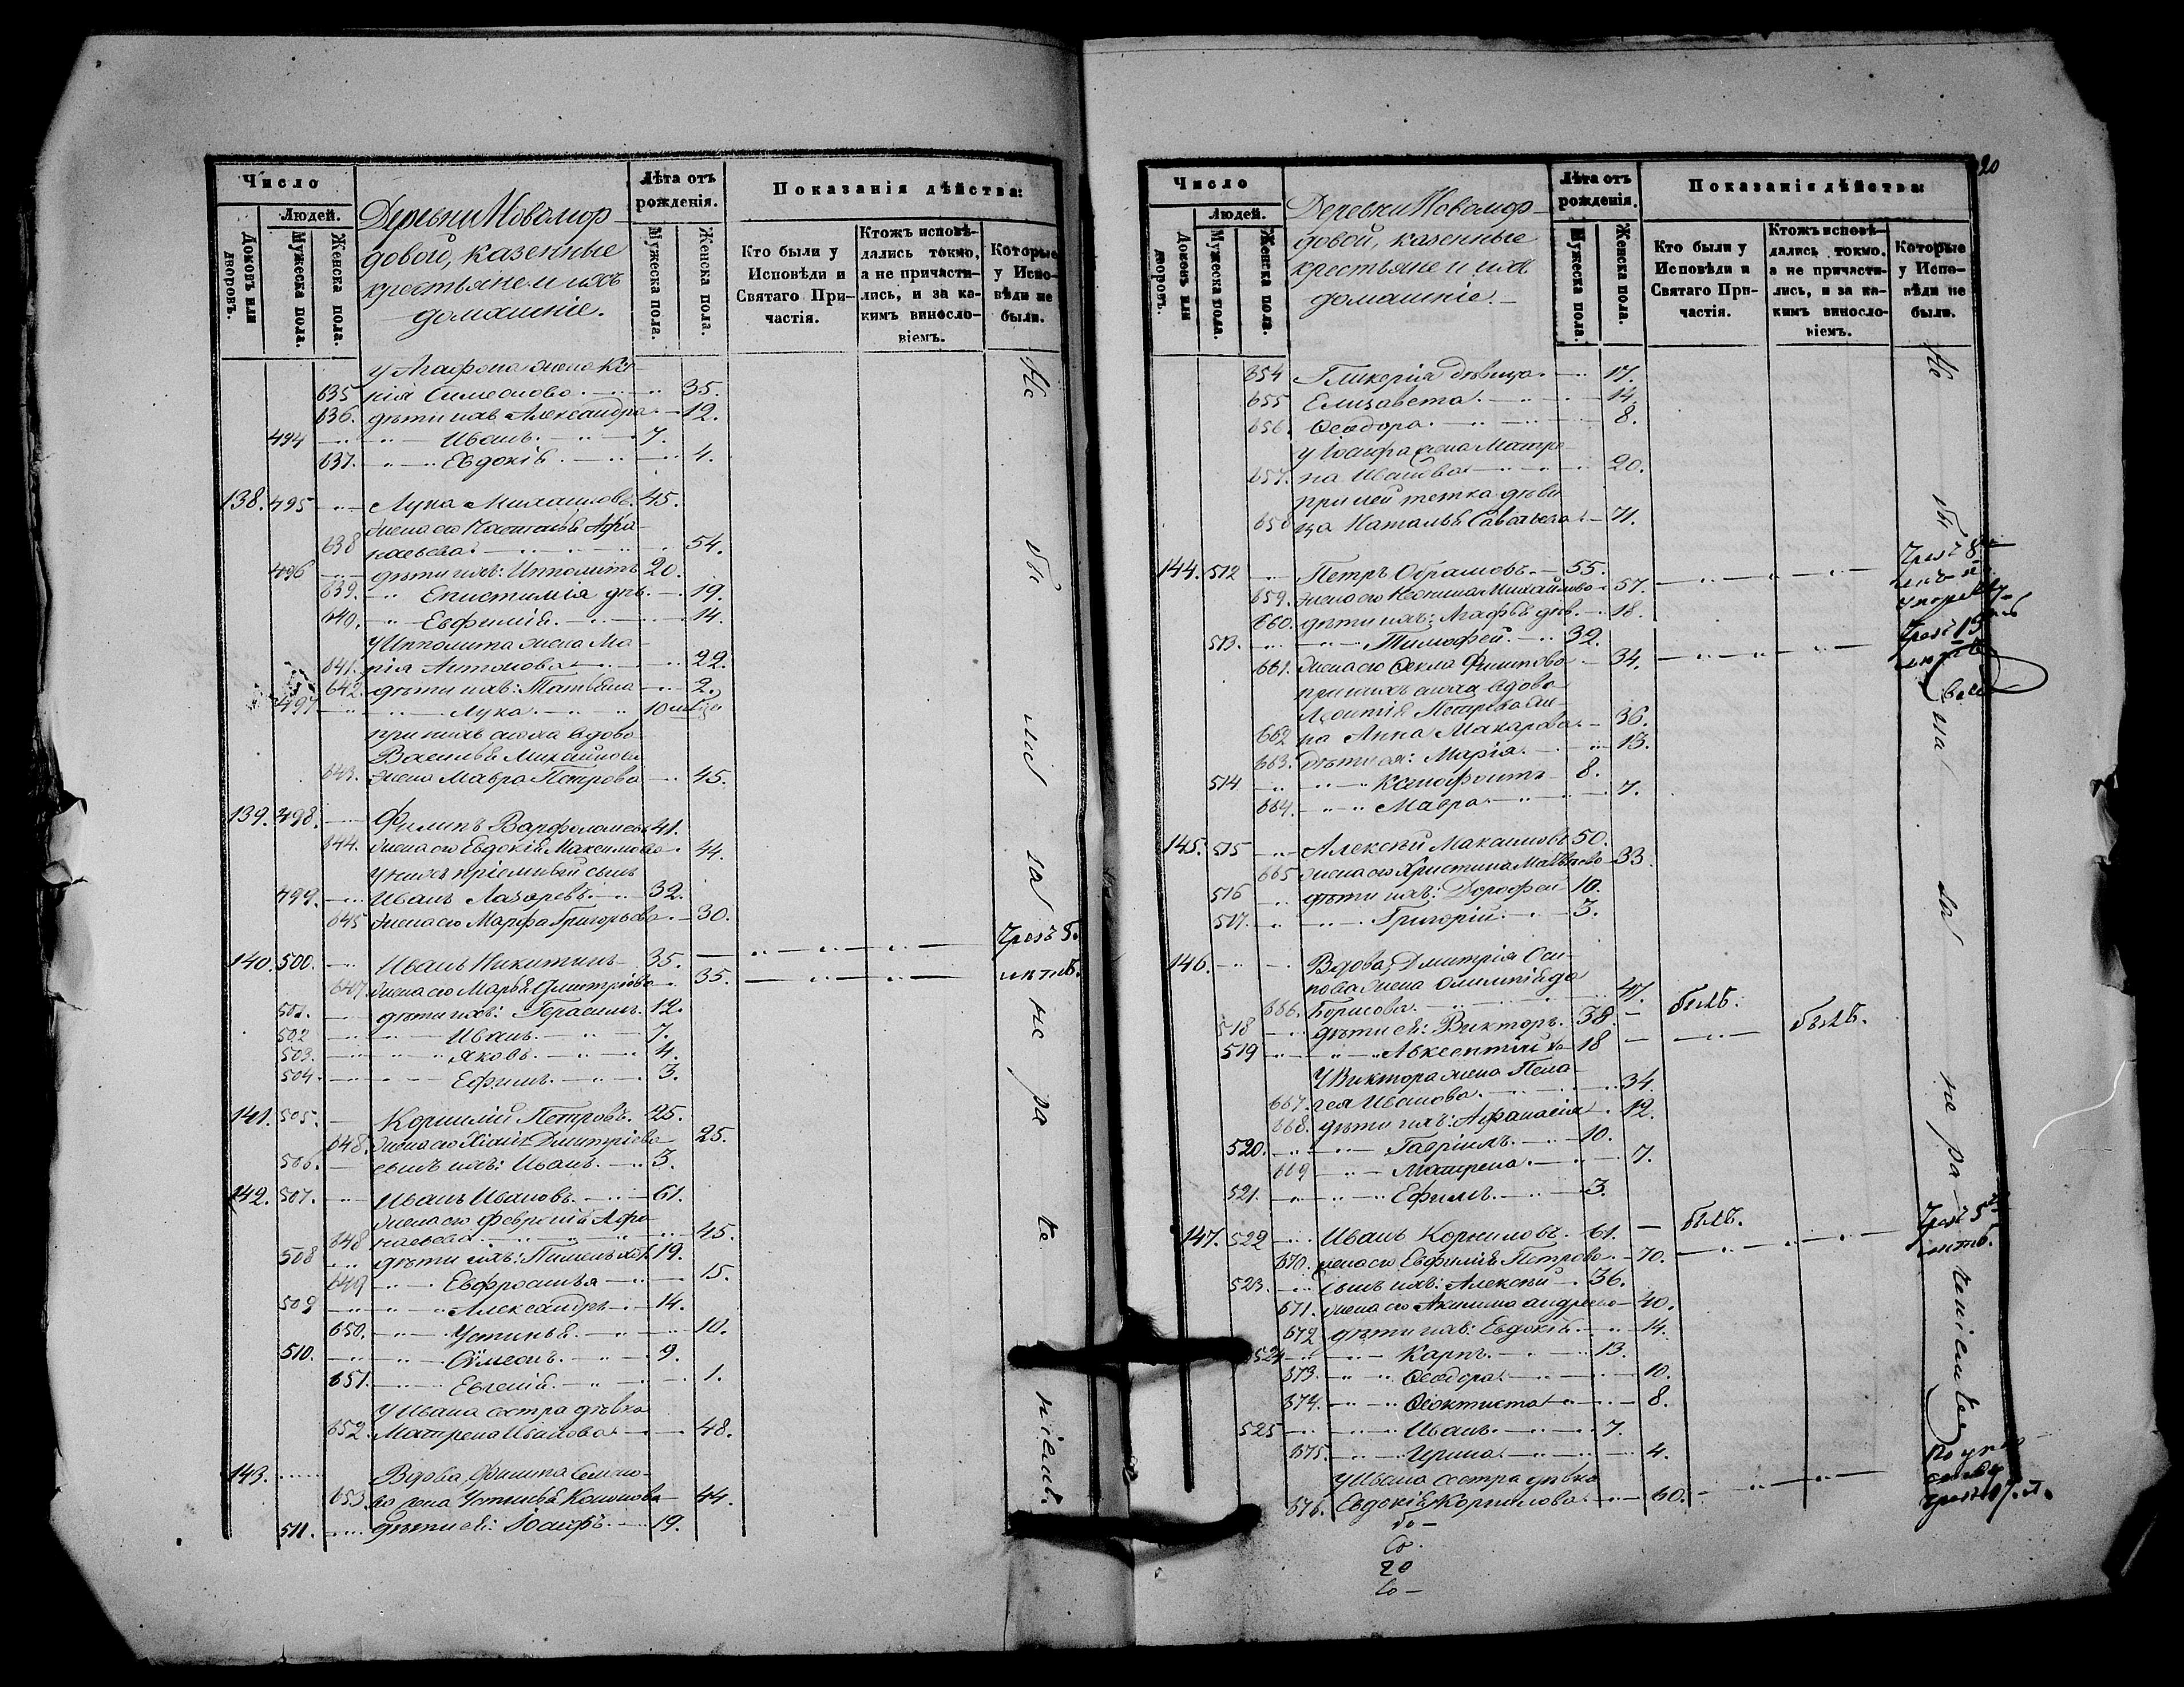 Число
Людей.
Домовъ или дворовъ.
Мужеска пола.
Женска пола.
Деревни Новомор-
довой, казенные
крестьяне и ихъ
домашніе.
Лѣта отъ рожденія.
Мужеска пола.
Женска пола.
Показанія дѣйства:
Кто были у Исповѣди и Святаго При-частія.
Ктожъ исповѣ-дались токмо, а не причасти-лись, и за ка-кимъ винословіемъ.
Которые у Испо-вѣди не были.
у Агафона жена Ксе-
635 нія Симеонова 35.
636. дѣти ихъ Александра 12.
494 Иванъ. 7.
637. Евдокія 4.
138. 495 Лука Михаиловъ. 45.
жена его Наталья Афа-
638 насьева 54.
496 дѣти ихъ: Ипполитъ 20.
639. Епистимія дѣв. 19.
640. Евфимія. 14.
У Ипполита жена Ма-
641. рія Антонова 22.
642. дѣти ихъ: Татьяна 2.
497 Лука.
при нихъ сноха вдова
Василья Михайлова
643. жена Мавра Петрова 45.
139. 498. Филипъ Варфоломеевъ 41.
644. жена его Евдокія Максимова 44.
У нихъ пріемный сынъ
499. Иванъ Лазаревъ. 32.
645 жена его Марфа Григорьева 30.
140. 500. Иванъ Никитинъ 35. Чрезъ 8.
647. жена его Марья Дмитріева 35. лѣтъ.
501. дѣти ихъ: Герасимъ. 12.
502 Иванъ. 7.
503. Яковъ. 4.
504. Ефимъ. 3.
141. 505. Корнилій Петровъ. 25.
648. жена его Дмитріева 25.
506. сынъ ихъ: Иванъ. 3.
142. 507. Иванъ Ивановъ. 61.
жена его Февронія Афа-
648 насьева 45.
508 дѣти ихъ: Пименъ хол. 19.
649 Евфросинья 15.
509 Александръ 14.
650. Устинья. 10.
510. Сѵмеонъ. 9.
651. Евгенія. 1.
У Ивана сестра дѣвка
652. Матрена Иванова 48.
143. Вдова, Филипа Семено-
653. ва жена Устинья Кононова 44.
511. дѣти ея: Іосифъ. 19.
Не бы ли за не ра че ніемъ.
20
Число
Людей.
Домовъ или дворовъ.
Мужеска пола.
Женска пола.
Деревни Новомор-
довой, казенные
крестьяне и ихъ
домашніе.
Лѣта отъ рожденія.
Мужеска пола.
Женска пола.
Показанія дѣйства:
Кто были у Исповѣди и Святаго При-частія.
Ктожъ исповѣ-дались токмо, а не причасти-лись, и за ка-кимъ винословіемъ.
Которые у Испо-вѣди не были.
654 Гликерія дѣвица 17.
655 Елизавета. 14.
656. Ѳеодора. 8.
у Іосифа жена Матре-
657. на Иванова 20.
при ней тетка дѣви-
658 ца Наталья Савельева 71.
144. 512 Петръ Обрамовъ. 55. Чрезъ 8
659. жена его Михайлова 57.
660. дѣти ихъ: Агафья дѣв. 18.
513. Тимофей. 32. Чрезъ 13
661. жена его Ѳекла Филипова 34.
при нихъ сноха вдова
Леонтія Петрова
662 Анна Макарова 36.
663. дѣти ея: Марія. 13.
514 Ксенофонтъ 8.
664. Мавра 7.
145. 515 Алексѣй Максимовъ 50.
665 жена его Христина Матвѣева 33.
516 дѣти ихъ: Дорофей 10.
517. Григорій. 3.
146. Вдова, Дмитрія Оси-
пова жена Олимпіяда
666. Борисова. 47. былъ.
518 дѣти ея: Викторъ. 38. былъ.
519 Авксентій 18
У Виктора жена Пела-
667. гея Иванова 34.
668. дѣти ихъ: Афанасія 12.
520. Гавріилъ. 10.
669 Матрена. 7.
521. Ефимъ. 3.
147. 522 Иванъ Корниловъ. 61. былъ. Чрезъ 5
670. жена его Евфимія Петрова 70. лѣтъ.
523. сынъ ихъ: Алексѣй 36.
671. жена его Акилина Андреева 40.
672 дѣти ихъ: Евдокія. 14.
524 Карпъ. 13.
673. Ѳеодора 10.
674. Ѳеоктиста 8.
525 Иванъ. 7.
675. Ирина 4.
У Ивана сестра дѣвка
676. Евдокія Корнилова 60. чрезъ 17. л.
Не бы ли за не ра че ніемъ
20